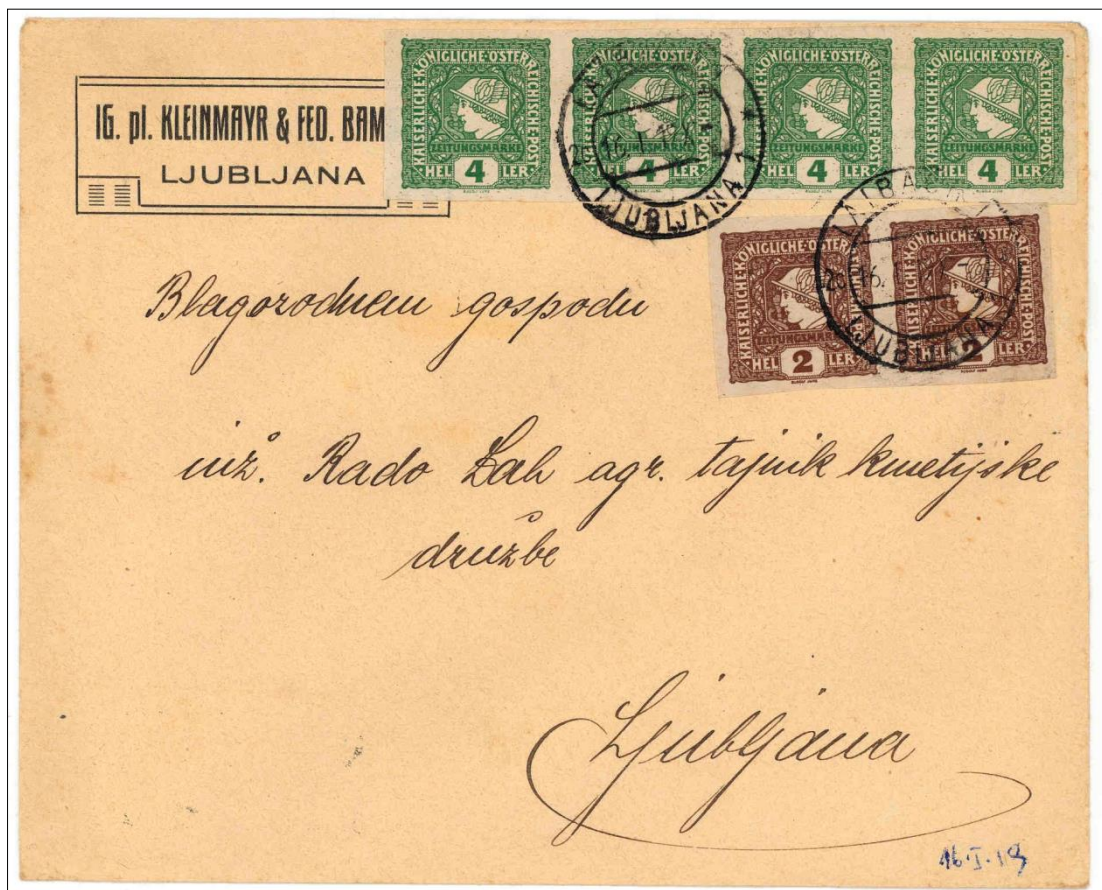 IG. pl. KLEINMAYR & FED. BAM
LJUBLJANA
KAISERLICHE·KÖNIGLICHE·ÖSTERREICHISCHE·POST
ZEITUNGSMARKE
HEL 4 LER
KAISERLICHE·KÖNIGLICHE·ÖSTERREICHISCHE·POST
ZEITUNGSMARKE
HEL 4 LER
KAISERLICHE·KÖNIGLICHE·ÖSTERREICHISCHE·POST
ZEITUNGSMARKE
HEL 4 LER
KAISERLICHE·KÖNIGLICHE·ÖSTERREICHISCHE·POST
ZEITUNGSMARKE
HEL 4 LER
LJUBLJANA 1
KAISERLICHE·KÖNIGLICHE·ÖSTERREICHISCHE·POST
ZEITUNGSMARKE
HEL 2 LER
KAISERLICHE·KÖNIGLICHE·ÖSTERREICHISCHE·POST
HEL 2 LER
LAIBACH 1
LJUBLJANA
Blagorodnem gospodu
inž. Rado Lah agr. tajnik kmetijske
družbe
Ljubljana
16·I·19